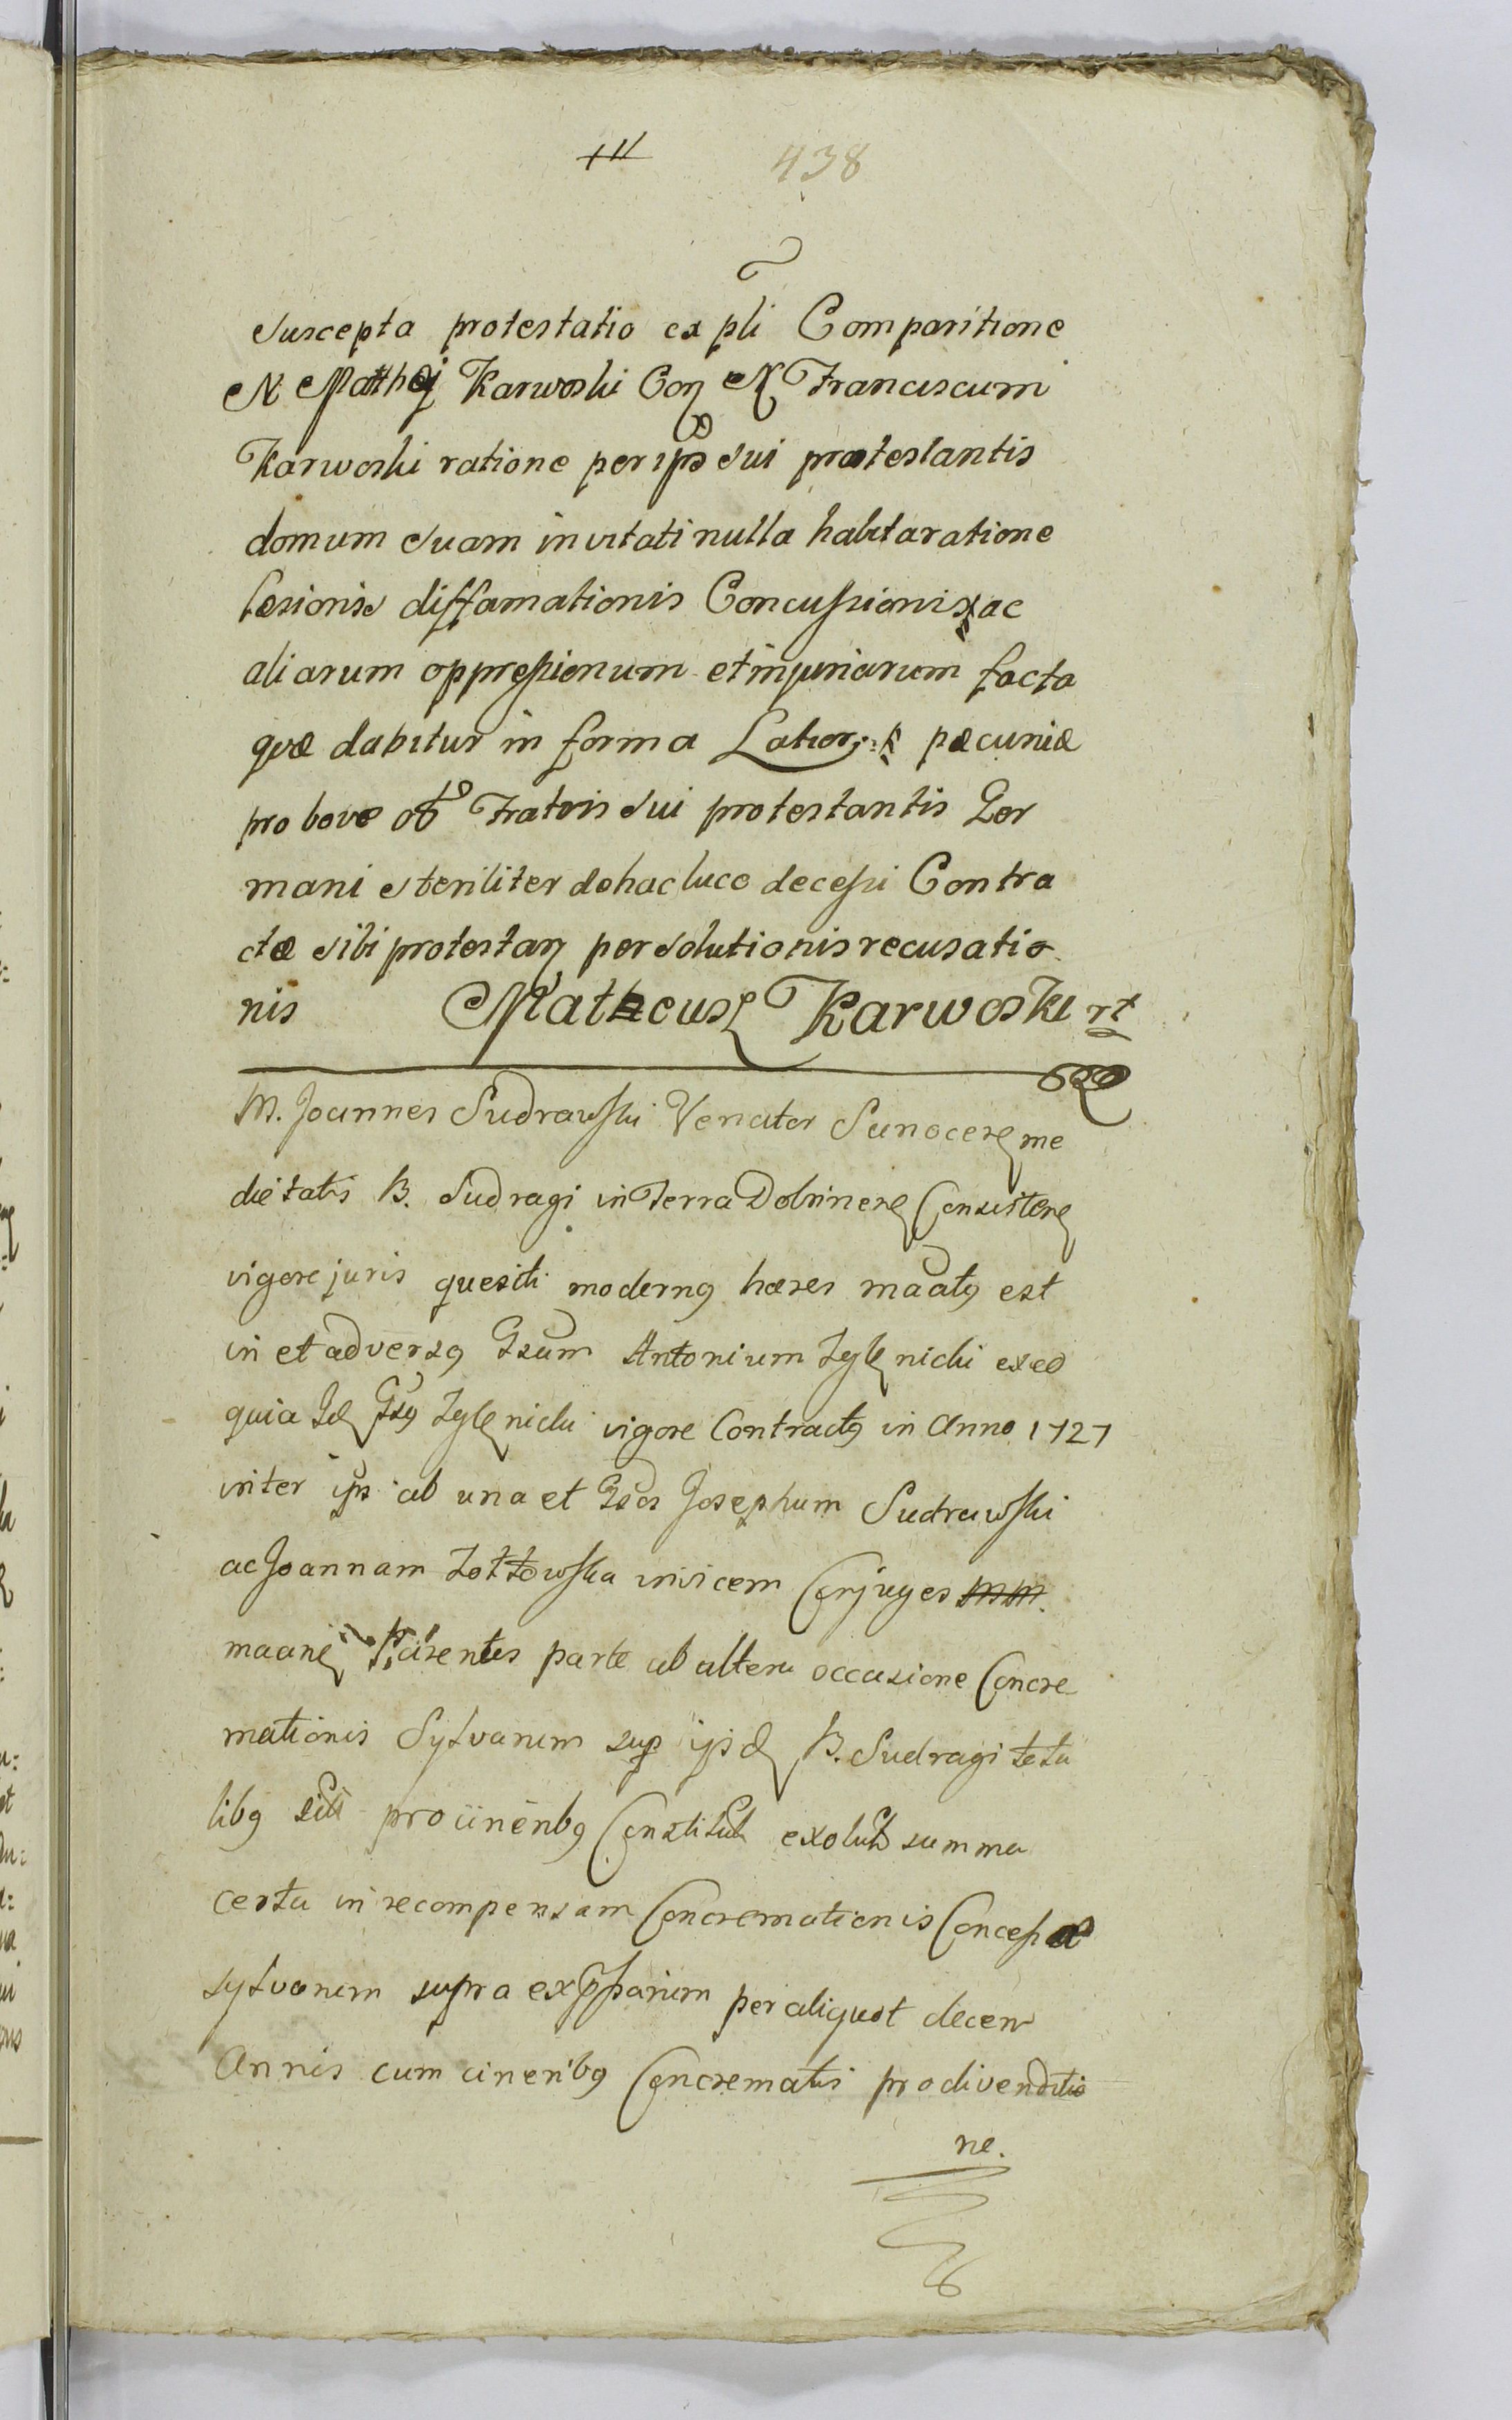 438
Suscepta protestatio ex pli Comparitione
N Matthej Karwoski Con N Franciscum
Karwoski ratione per ips sui protestantis
domum suam invitati nulla habita ratione
læsionis diffamationis Concussionis ac
aliarum oppressionum et injuriarum facta
quæ dabitur in forma Latior: pæcuniæ
pro bove Fratris sui protestantis Ger
mani steriliter de hac luce decessi Contra
ctæ sibi protestan persolutionis recusatio
nis Matheus Karwoski
M. Joannes Sudrawski Venator Sanocen me
dietatis B. Sudragi in Terra Dobrinen Consisten
vigore juris quesiti modernq hæres maatq est
in et adversq Gsum Antonium Zglenicki ex eo
quia Gsq Zglenicki vigore Contractq in Anno 1727
inter ips ab una et Gsos Josephum Sudrawski
ac Joannam Zottowska invicem Conjuges
maane Parentes parte ab altera occasione Concre
mationis Sylvarum sup ipsd B. Sudragi teta
libq pro cinenbq Constitut exolut summa
certa in recompensam Concremationis Concessæ
sylvarum supra expssarum per aliquot decem
Annis cum cineribq Concrematis pro divenditio
ne.